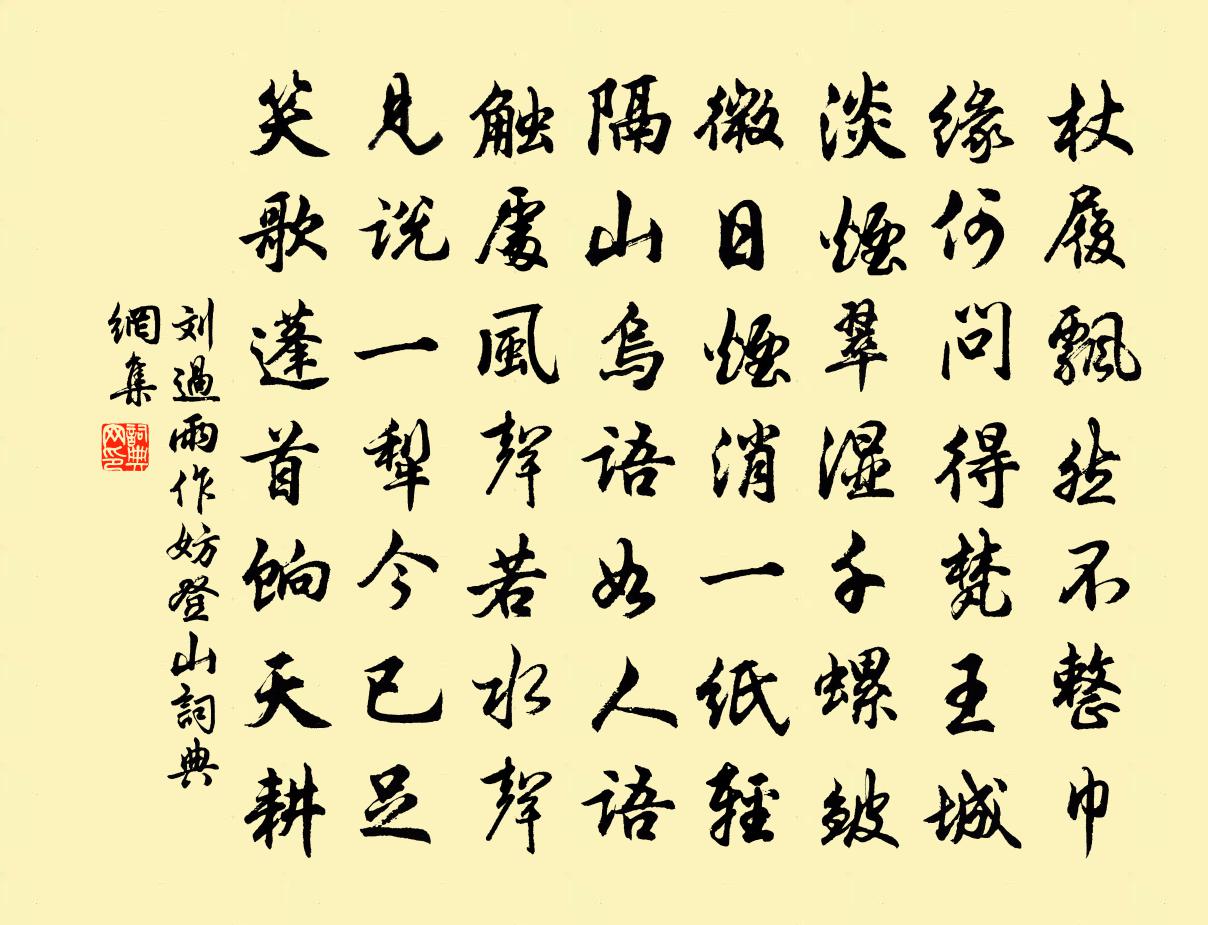 杖履飄然不整巾
緣何問得梵王城
淡煙翠湿千螺皺
微日煙消一紙輕
隔山烏語如人語
触處風聲若水聲
見説一犂今已足
笑歌蓬首餉天耕
刘過雨作妨登山詞典
網集
詞典網印